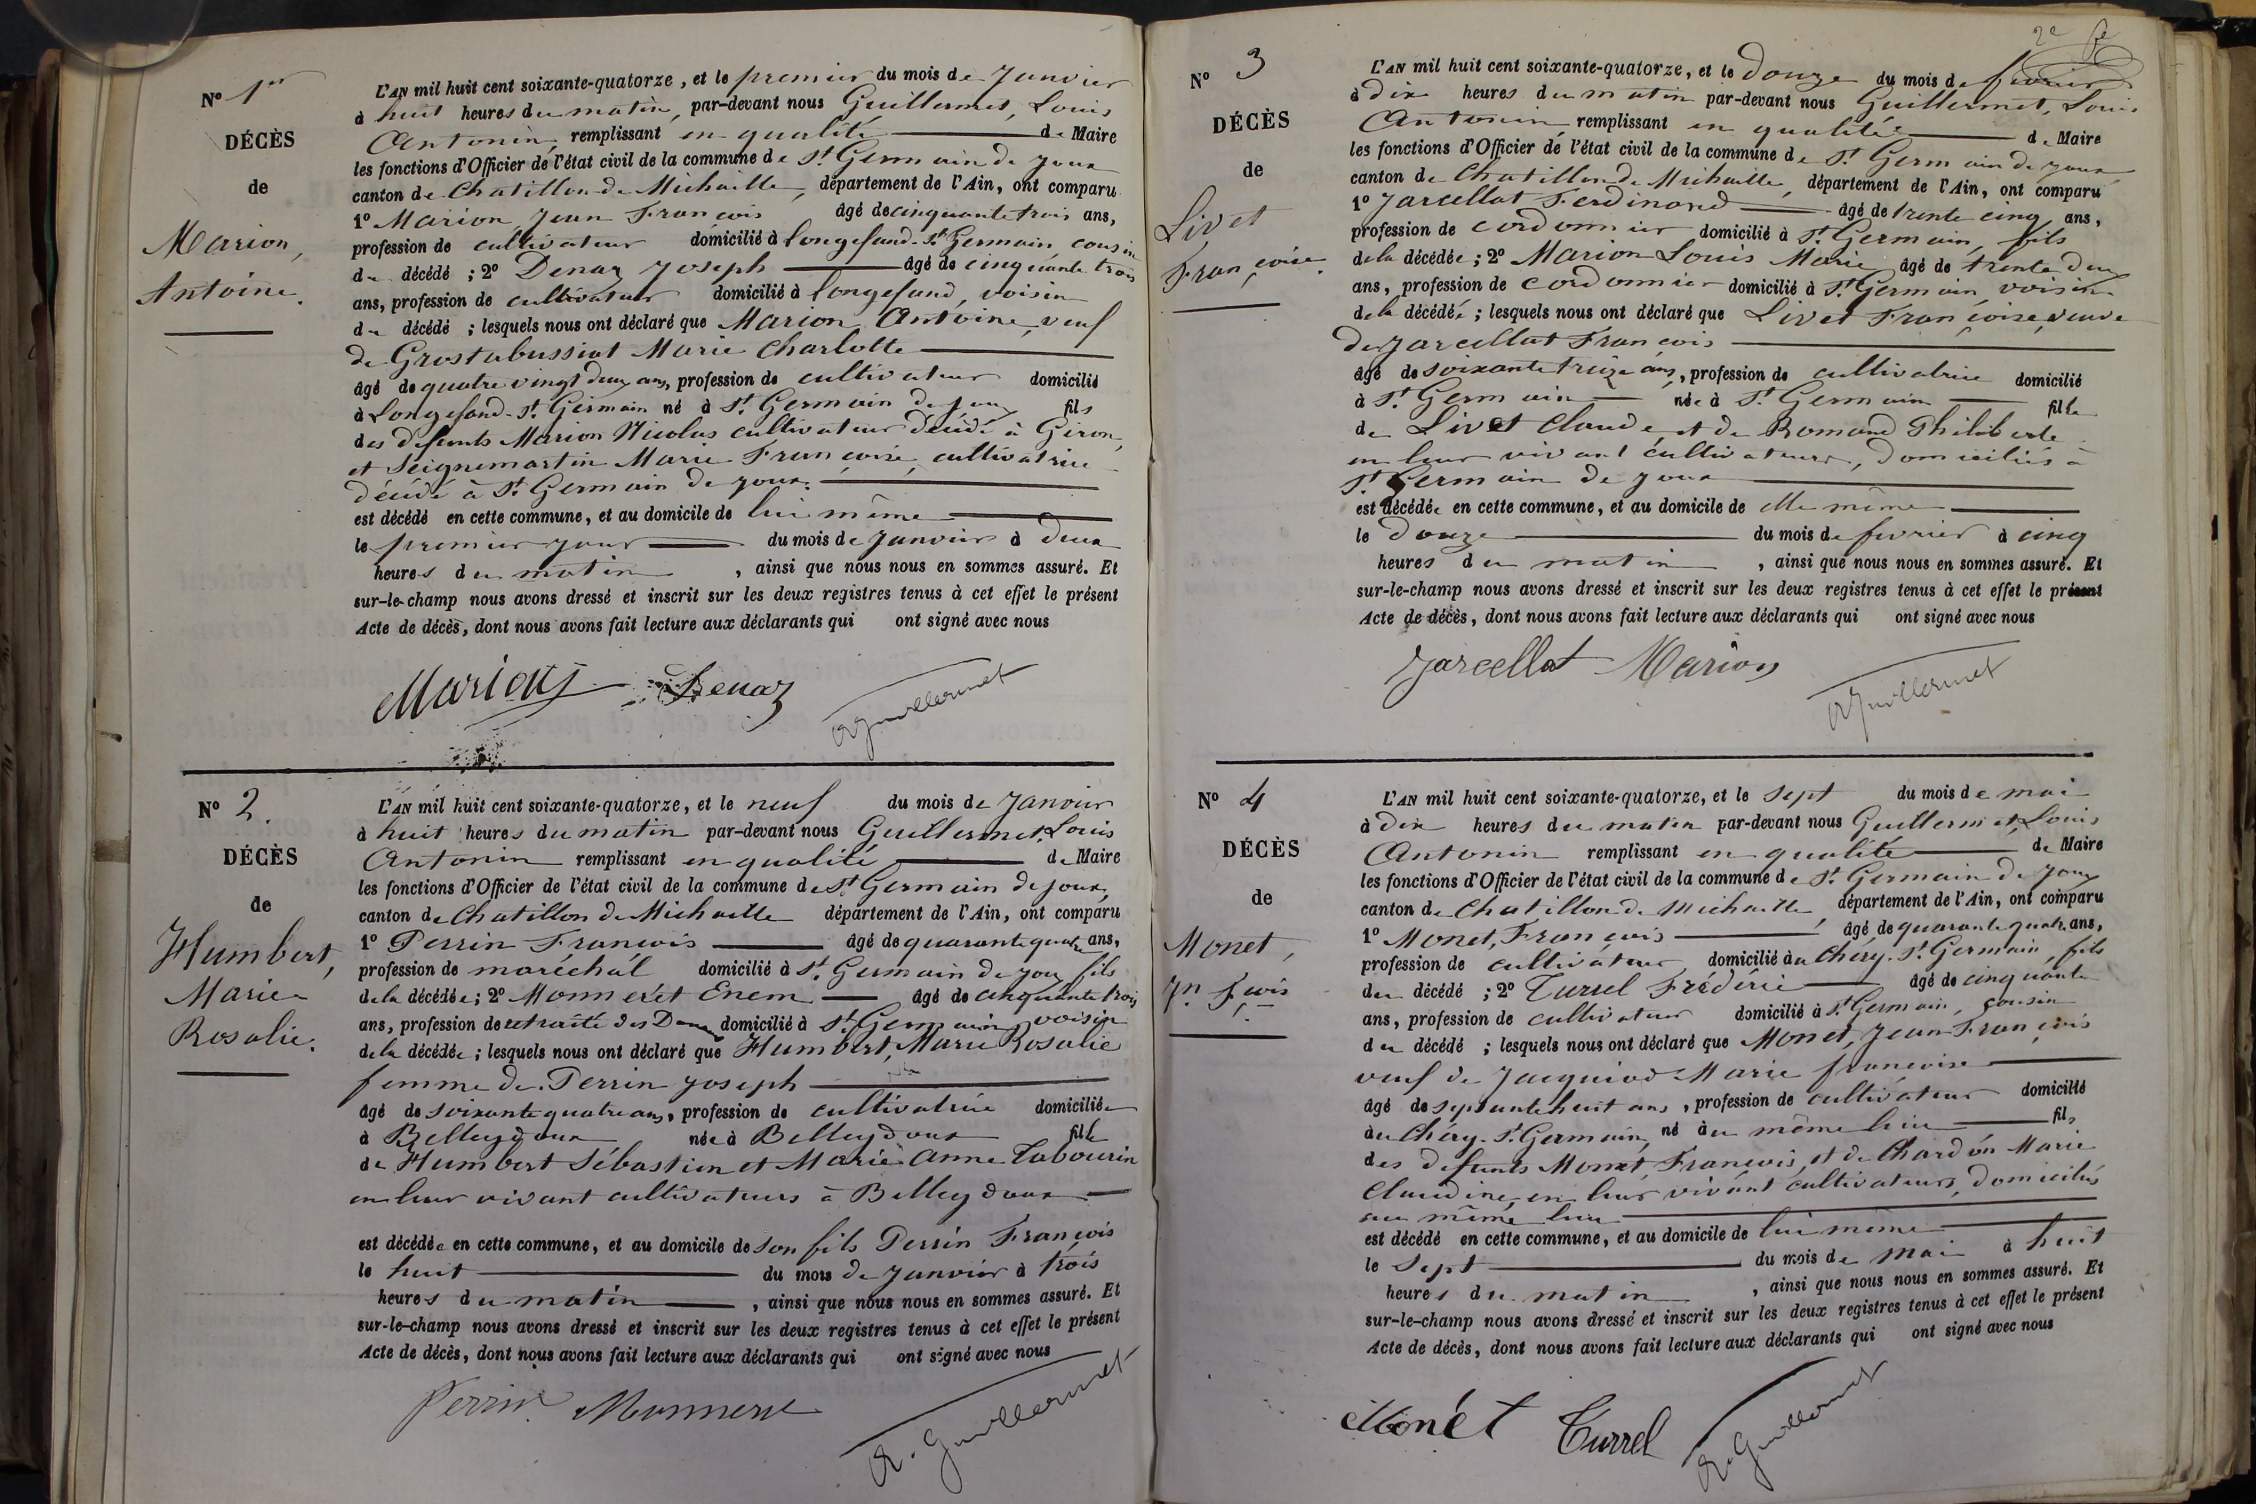 N° 1er
DÉCÈS
de
Marion,
Antoine.
L'AN mil huit cent soixante-quatorze, et le premier du mois de Janvier
à huit heures du matin, par-devant nous Guillermet, Louis
Antonin, remplissant en qualité de Maire
les fonctions d'Officier de l'état civil de la commune de St Germain de Joux
canton de Chatillon de Michaille, département de l'Ain, ont comparu
1° Marion, Jean François âgé de cinquante trois ans,
profession de cultivateur domicilié à Longefand-St Germain, cousin
du décédé ; 2° Denaz Joseph âgé de cinquante trois
ans, profession de cultivateur domicilié à Longefand, voisin
du décédé ; lesquels nous ont déclaré que Marion Antoine, veuf
de Grostabussiat Marie Charlotte
âgé de quatre vingt deux ans, profession de cultivateur domicilié
à Longefand-St Germain né à St Germain de Joux fils
des defunts Marion Nicolas cultivateur décédé à Giron,
et Seignemartin Marie Françoise, cultivatrice
décédé à St Germain de Joux.
est décédé en cette commune, et au domicile de lui même
le premier jour du mois de Janvier à deux
heures du matin, ainsi que nous nous en sommes assuré. Et
sur-le-champ nous avons dressé et inscrit sur les deux registres tenus à cet effet le présent
Acte de décès, dont nous avons fait lecture aux déclarants qui ont signé avec nous
Marion Denaz Guillermet
N° 2.
DÉCÈS
de
Humbert,
Marie
Rosalie.
L'AN mil huit cent soixante-quatorze, et le neuf du mois de Janvier
à huit heures du matin par-devant nous Guillermet, Louis
Antonin remplissant en qualité de Maire
les fonctions d'Officier de l'état civil de la commune de St Germain de Joux,
canton de Chatillon de Michaille département de l'Ain, ont comparu
1° Perrin François âgé de quarante quatre ans,
profession de maréchal domicilié à St Germain de Joux fils
de la décédée ; 2° Monneret Enem âgé de cinquante trois
ans, profession de retraité des Douanes domicilié à St Germain, voisin
de la décédée ; lesquels nous ont déclaré que Humbert, Marie Rosalie
femme de Perrin Joseph
âgé de soixante quatre ans, profession de cultivatrice domiciliée
à Belleydoux née à Belleydoux fille
de Humbert Sébastien et Marie Anne Tabourin
en leur vivant cultivateurs à Belleydoux
est décédée en cette commune, et au domicile de son fils Perrin François
le huit du mois de Janvier à trois
heures du matin, ainsi que nous nous en sommes assuré. Et
sur-le-champ nous avons dressé et inscrit sur les deux registres tenus à cet effet le présent
Acte de décès, dont nous avons fait lecture aux déclarants qui ont signé avec nous
Perrin Monneret A. Guillermet
2e
N° 3
DÉCÈS
de
Livet
Françoise.
L'AN mil huit cent soixante-quatorze, et le douze du mois de fevrier
à dix heures du matin par-devant nous Guillermet, Louis
Antonin remplissant en qualité de Maire
les fonctions d'Officier de l'état civil de la commune de St Germain de Joux
canton de Chatillon de Michaille, département de l'Ain, ont comparu
1° Jarcellat Ferdinand âgé de trente cinq ans,
profession de cordonnier domicilié à St Germain, fils
de la décédée ; 2° Marion Louis Marie âgé de trente deux
ans, profession de cordonnier domicilié à St Germain, voisin
de la décédée ; lesquels nous ont déclaré que Livet Françoise, veuve
de Jarcellat François
âgé de soixante treize ans, profession de cultivatrice domicilié
à St Germain née à St Germain fille
de Livet Claude et de Romand Philiberte
en leur vivant cultivateurs, domiciliés à
St Germain de Joux
est décédée en cette commune, et au domicile de elle même
le douze du mois de fevrier à cinq
heures du matin, ainsi que nous nous en sommes assuré. Et
sur-le-champ nous avons dressé et inscrit sur les deux registres tenus à cet effet le présent
Acte de décès, dont nous avons fait lecture aux déclarants qui ont signé avec nous
Jarcellat Marion A Guillermet
N° 4
DÉCÈS
de
Monet,
Jn fcois
L'AN mil huit cent soixante-quatorze, et le sept du mois de mai
à dix heures du matin par-devant nous Guillermet, Louis
Antonin remplissant en qualité de Maire
les fonctions d'Officier de l'état civil de la commune de St Germain de Joux
canton de Chatillon de Michaille, département de l'Ain, ont comparu
1° Monet, François âgé de quarante quatre ans,
profession de cultivateur domicilié au Chéry-St Germain, fils
du décédé ; 2° Turrel Frédéric âgé de cinquante
ans, profession de cultivateur domicilié à St Germain, cousin
du décédé ; lesquels nous ont déclaré que Monet, Jean François
veuf de Jacquiod Marie francoise
âgé de septante huit ans, profession de cultivateur domicilié
au Chéry-St Germain, né au même lieu fils
des defunts Monet, François, et de Chardon Marie
Claudine, en leur vivant cultivateurs, domiciliés
au même lieu
est décédé en cette commune, et au domicile de lui même
le sept du mois de mai à huit
heures du matin, ainsi que nous nous en sommes assuré. Et
sur-le-champ nous avons dressé et inscrit sur les deux registres tenus à cet effet le présent
Acte de décès, dont nous avons fait lecture aux déclarants qui ont signé avec nous
Monét Turrel A. Guillermet